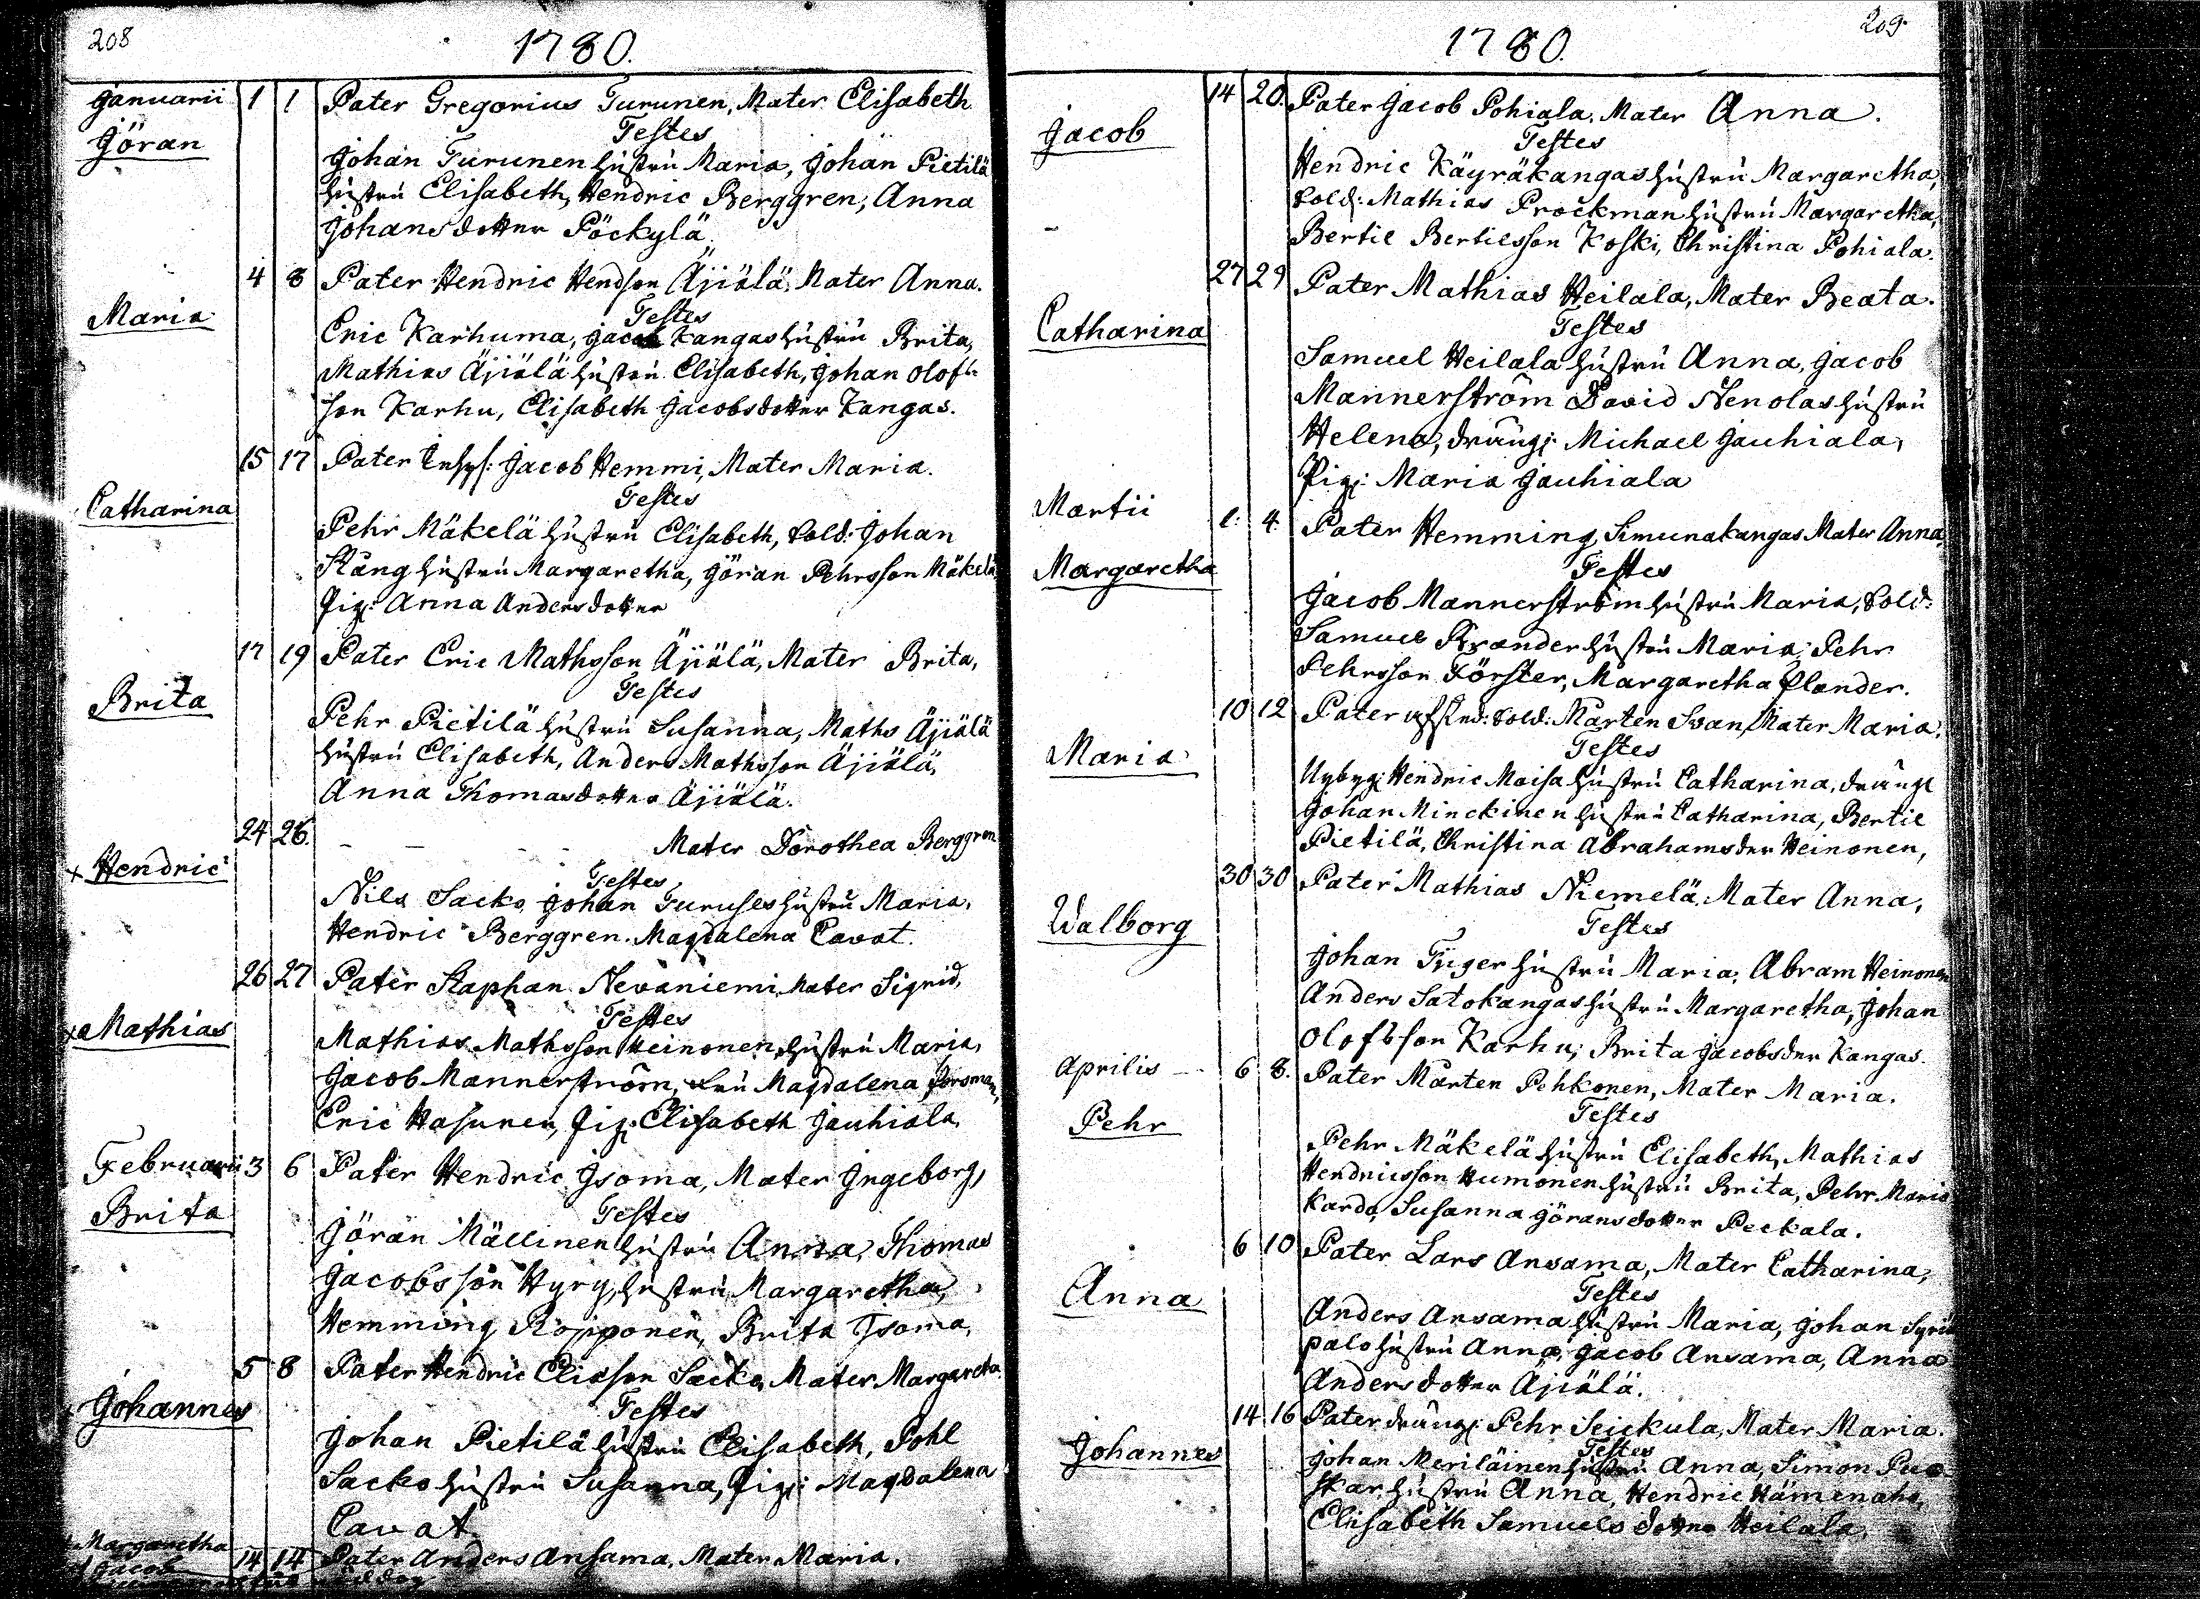 208
1780.
Januarii 1 1 Pater Gregorius Turunen, Mater Elisabeth
Göran
Testes
Johan Turunen hustru Maria, Johan Pietilä
hustru Elisabeth, Hendric Berggren, Anna
Johansdotter Pöckylä
4 8 Pater Hendric Hendson Äjiälä, Mater Anna.
Maria
Testes
Eric Karhuma, Jacob Kangas hustru Brita,
Mathias Äjiälä hustru Elisabeth, Johan Olofs
son Karhu, Elisabeth Jacobsdotter Kangas.
15 17 Pater Jacob Hemmi, Mater Maria.
Catharina
Testes
Pehr Mäkelä hustru Elisabeth, Sold: Johan
Stång hustru Margaretha, Göran Pehrsson Mäkelä
Pig: Anna Andersdotter
17 19 Pater Eric Mathsson Äjiälä, Mater Brita,
Brita
Testes
Pehr Pietilä hustru Susanna, Maths Äjiälä
hustru Elisabeth, Anders Mathsson Äjiälä,
Anna Thomasdotter Äjiälä.
24 26. - - - - Mater Dorothea Berggren
x Hendric
Testes
Nils Sacko, Johan hustru Maria,
Hendric Berggren. Magdalena Cavat.
26 27 Pater Staphan Nevaniemi, Mater Sigrid,
x Mathias
Testes
Mathias Mathsson Heinonen, hustru Maria,
Jacob Mannerström, Magdalena Forsman,
Eric Hasunen, Pig: Elisabeth Jauhiala,
Februarii 3 6 Pater Hendric Isoma, Mater Ingeborg,
Brita
Testes
Göran Mällinen hustru Anna, Thomas
Jacobsson Hyry, hustru Margaretha,
Hemming Rojpponen, Brita Isoma,
5 8 Pater Hendric Eliasson Sacko, Mater Margareta.
Johannes
Testes
Johan Pietilä hustru Elisabeth, Pohl
Sacko hustru Susanna, Pig: Magdalena
Cavat
Margaretha
Jacob
14 14 Pater Anders Ansama, Mater Maria.
209
1780.
14 20. Pater Jacob Pohiala, Mater Anna.
Jacob
Testes
Hendric Käyräkangas hustru Margaretha,
Sold: Mathias Prockman hustru Margaretha,
Bertil Bertilsson Koski, Christina Pohiala.
27 29 Pater Mathias Heilala, Mater Beata.
Catharina
Testes
Samuel Heilala hustru Anna, Jacob
Mannerström David Nenolas hustru
Helena, drängj: Michael Jauhiala,
Pig: Maria Jauhiala
Martii 1: 4 Pater Hemming Simunakangas Mater Anna,
Margaretha
Testes
Jacob Mannerström hustru Maria, Sold:
Samuel hustru Maria, Pehr
Pehrsson Förster, Margaretha Elander.
10 12 Pater Sold: Mårten Svan, Mater Maria.
Maria
Testes
Nybyg: Hendric Moisa hustru Catharina, dräng:
Johan Minckinen hustru Catharina, Bertil
Pietilä, Christina Abrahamsder Heinonen,
30 30 Pater Mathias Niemelä, Mater Anna,
Walborg
Testes
Johan Tyger hustru Maria, Abram Heinonen
Anders Satokangas hustru Margaretha, Johan
Olofsson Karhu, Brita Jacobsder Kangas.
Aprilis 6 8. Pater Mårten Pehkonen, Mater Maria.
Pehr
Testes
Pehr Mäkelä hustru Elisabeth, Mathias
Hendricsson Humonen hustru Brita, Pehr Maria
Kardo, Susanna Göransdotter Peckala.
6 10 Pater Lars Ansama, Mater Catharina,
Anna
Testes
Anders Ansama hustru Maria, Johan
palo hustru Anna, Jacob Ansama, Anna
Andersdotter Äjiälä.
14 16 Pater drängj: Pehr Seickula, Mater Maria.
Johannes
Testes
Johan Meriläinen hustru Anna, Simon
hustru Anna, Hendric Hämenaho,
Elisabeth Samuels dotter Heilala,